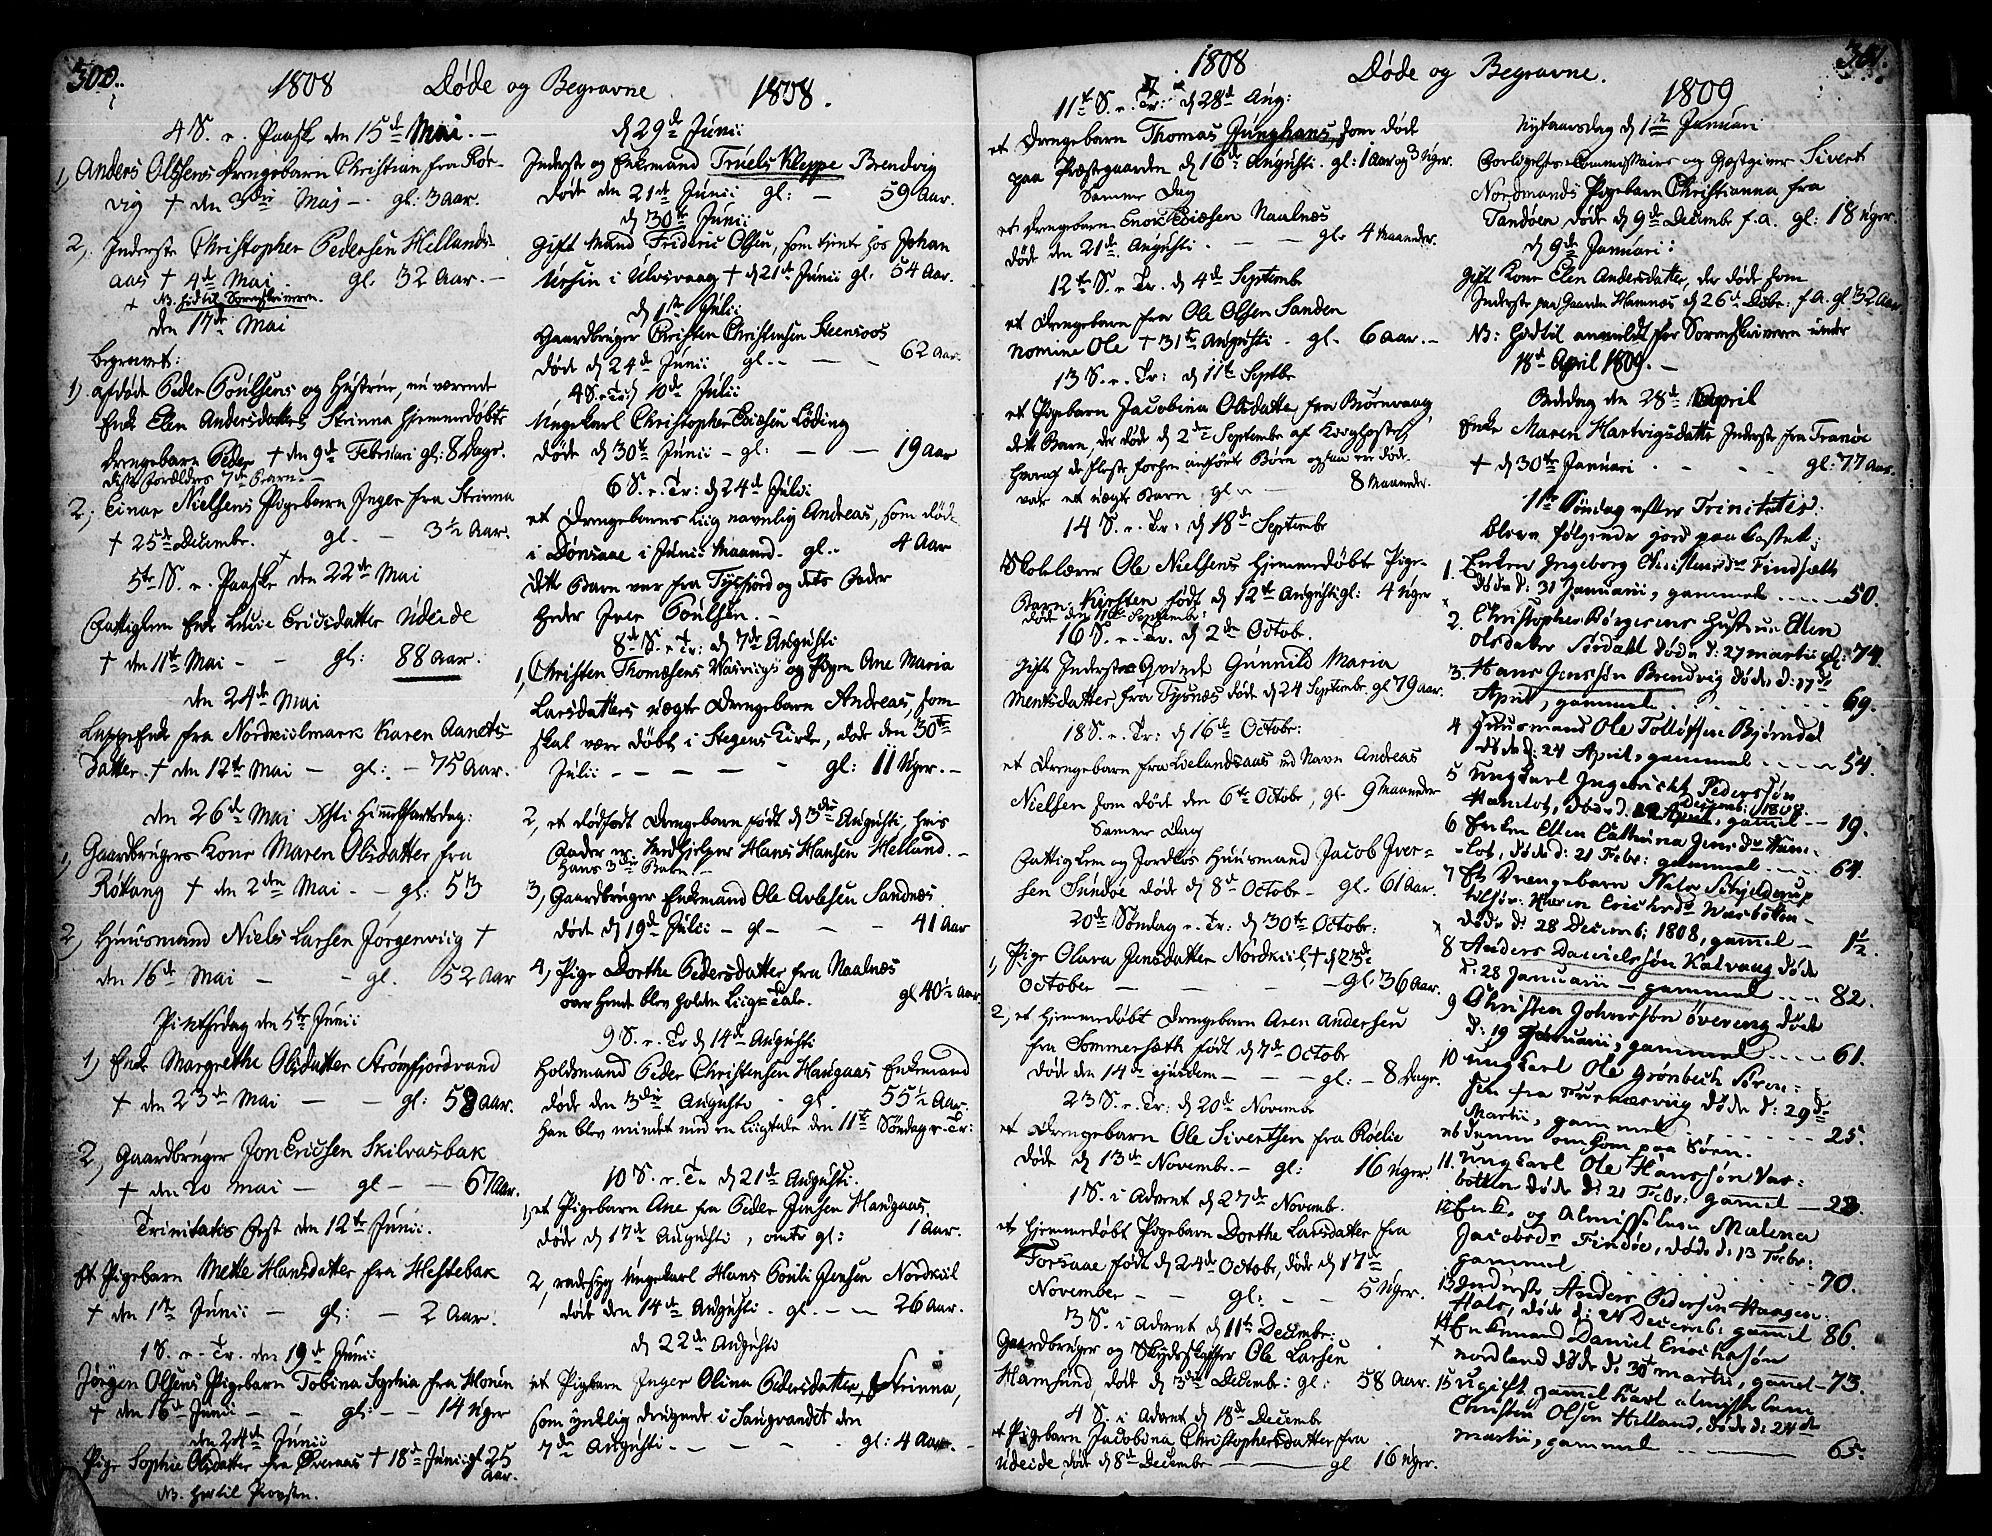 300.
1808 Døde og Begravne 1808.
4 S. e. Paaske den 15de Mai.
1) Anders Olsens Drengebarn Christian fra Kør-
vig † den 3die Mai gl: 3 Aar.
2, Inderste Christopher Pedersen Hellands-
aas † 4de Mai gl. 32 Aar.
NB. hidtil Sorenskriveren.
den 17de Mai
begravet:
1) afdøde Peder Povelsens og Hustrue, nu værende
Enke Elen Andersdatters Strinna hjemmedøbte
Drengebarn Peder † den 9de Februari gl: 8 Dage.
disse Forældres 7de Barn
2, Einar Nielsens Pigebarn Inger fra Strinna
† 25de Decembr. gl. 3½ Aar.
5te S. e. Paaske den 22de Mai
Fattiglem Enke Lucie Ericsdatter Udeide
† den 11te Mai gl: 88 Aar.
den 24de Mai
Lappe Enke fra Nordkiilmark Karen Aanets-
datter † den 12te Mai gl: 75 Aar.
den 26de Mai Christi Himmelfartsdag:
1, Gaardbrugers Kone Maren Olsdatter fra
Røtang † den 2den Mai gl: 53
2, Huusmand Niels Larsen Jørgenviig †
den 16de Mai gl. 52 Aar
Pintsedag den 5te Junii
1) Enke Margrethe Olsdatter Strømfjordvand
† den 23de Mai gl: 58 Aar.
2, Gaardbruger Jon Ericsen Skilvasbak
† den 20 Mai gl 67 Aar.
Trinitatis Fest den 12te Junii.
Et Pigebarn Mette Hansdatter fra Hestebak
† den 1ste Junii gl: 2 Aar.
1 S. e. Tr. den 19de Junii
Jørgen Olsens Pigebarn Tobina Sophia fra Monen
† den 16de Junii gl: 14 Uger
den 24de Junii
Pige Sophie Olsdatter fra Øveraas † 18de Junii gl 25
Aar.
NB. hertil Provsten.
d 29de Junii
Inderst og Enkemand Truels Kleppe Brendvig
døde den 21de Junii gl: 59 Aar.
d 30te Junii
Gift Mand Frideric Olsen, som tjente hos Johan
Ursin i Ulvsvaag † d 21de Junii gl. 54 Aar.
d 1ste Julii
Gaardbruger Christen Christensen Steensoos
døde d 24de Junii gl. 62 Aar.
4 S. e. Tr: d 10de Julii
Ungekarl Christopher Ediæsen Løding
døde d 30te Junii gl: 19 Aar
6 S. e. Tr: d 24de Julii
et Drengebarns Liig navnlig Andreas, som døde
i Dønsaae i Junii Maaned. gl. 4 Aar
dette Barn var fra Tysfjord og dets Fader
heder Iver Povelsen.
8de S. e. Tr: d 7de Augusti
1, Christen Thomæsens Vasviigs og Pigen Ane Maria
Larsdatters uægte Drengebarn Andreas, som
skal være døbt i Stegens Kirke, døde den 30te
Julii gl: 11 Uger.
2, et dødfødt Drengebarn født d 3die Augusti, hvis
Fader er Medhjelper Hans Hansen Helland.
Hans 3die Barn
3, Gaardbruger Enkemand Ole Arlesen Sandnæs
døde d 19de Julii gl 41 Aar
4, Pige Dorthe Pedersdatter fra Naalnæs
over hende blev holden Liig-Tale. gl 40½ Aar
9 S. e. Tr d 14de Augusti
Holdsmand Peder Christensen Haugaas Enkemand
døde den 3die Augusti gl. 55½ Aar.
Han blev mindet med en Liigtale den 11te Søndag e. Tr:
10 S. e. Tr d 21de Augusti.
1, et Pigebarn Ane fra Peder Jensen Haugaas
døde d 17de Augusti, omtr gl: 1 Aar.
2, radesyg Ungekarl Hans Povli Jensen Nordkiil
døde den 14de Augusti. gl. 26 Aar.
d 22de Augusti
et Pigebarn Inger Olina Pedersdatter, Strinna,
som ynklig druknede i Saugvandet den
7de Augusti gl: 4 Aar
1808 Døde og Begravne. 1809
301.
11te S. e. Tr: d 28de Aug:
et Drengebarn Thomas Junghans, som døde
paa Præstgaarden d 16de Augusti. gl: 1 Aar og 3 Uger.
Samme Dag
et Drengebarn Enok Ediæsen Naalnæs
døde den 21de Augusti. gl. 4 Maaneder.
12te S. e. Tr. d 4de Septembr
et Drengebarn fra Ole Olsen Sanden
nomine Ole † 31te Augusti gl. 6 Aar.
13 S. e. Tr: d 11te Septbr
et Pigebarn Jacobina Olsdatter fra Biørnvaag,
dette Barn, der døde d 2den Septembr af Kighoste,
hvoraf de fleste forhen anførte Børn ogsaa ere døde
var et uægte Barn gl. 8 Maaneder.
14 S. e. Tr: d 18de Septembr
Skolelærer Ole Nielsens hjemmedøbte Pige-
Barn Kirsten født d 12te Augusti gl: 4 Uger
døde den 11te Septembr.
16 S. e. Tr. d 2de Octobr.
Gift Inderste Qvinde Gunnild Maria
Mentsdatter fra Tysnæs døde d 24 Septembr. gl 79 Aar.
18 S. e. Tr: d 16de Octobr:
et Drengebarn fra Lielandsaas ved Navn Andreas
Nielsen som døde den 6te Octobr, gl. 9 Maaneder
Samme Dag
Fattiglem og Jordløs Huusmand Jacob Iver-
sen Sundøe døde d 8de Octobr gl. 61 Aar.
20de Søndag e. Tr: d 30te Octobr:
1, Pige Olava Jensdatter Nordkiil, † d 23de
October gl. 36 Aar.
2, et hjemmedøbt Drengebarn Aren Andersen
fra Sommersæth født d 7de Octobr
døde den 14de ejusdem gl: 8 Dage.
23 S. e. Tr: d 20de Novembr
et Drengebarn Ole Sivertsen fra Røelie
døde d 13de Novembr. gl: 16 Uger
1 S. i Advent d 27de Novemb.
et hjemmedøbt Pigebarn Dorthe Larsdatter fra
Forsaae født d 24de Octobr, døde d 17de
November gl: 5 Uger.
3 S. i Advent d 11te Decembr:
Gaardbruger og Skydsskaffer Ole Larsen
Hamsund, døde d 3de Decembr: gl: 58 Aar.
4 S. i Advent d 18de Decembr
et Pigebarn Jacobina Christophersdatter fra
Udeide, døde d 8de Decembr gl 16 Uger.
Nytaarsdag d 1ste Januari
Forligelses-Commissairs og Gæstgiver Sivert
Nordmands Pigebarn Christianna fra
Tandøen døde d 9de Decembr f.a. gl: 18 Uger
d 9de Januari:
Gift Kone Elen Andersdatter, der døde som
Inderste paa Gaarden Hamnæs d 26de Decbr: f.a. gl. 32 Aar
NB: hidtil anmeldt for Sorenskriveren under
18de April 1809.
Bededag den 28de April
Enke Maren Hartvigsdatter Inderste fra Tranøe
† d 30te Januari gl: 77 Aar.
11te Søndag efter Trinitatis:
bleve følgende jord paa kastet:
1. Enken Ingeborg Christensdr Findsæth
døde d: 31 Januarii, gammel 50.
2. Christopher Børgesens hustrue Ellen
Olsdatter Sørdahl døde d: 27 martii gl: 74.
3. Hans Jenssøn Brendvig døde d: 17de
April, gammel 69.
4 Huusmand Ole Tolløfsen Bjørndal
døde d: 24 April, gammel 54.
5 Ungkarl Ingebricht Pederssøn
Hamlot, døde d. Decemb: 1808. gammel 19.
6 Enken Ellen Cathrina Jensdr Ham-
lot, døde d: 21 Febr: gammel 64.
7 Et Drengebarn Nils Schjelderup
tilhør: Karen Erichsdr Warbotten
døde d: 28 Decemb: 1808, gammel 1½.
8 Anders Danielssøn Kalvaag døde
d: 28 Januarii gammel 82.
9 Christen Johnssøn Øvereng døde
d: 19 Februarii, gammel 61.
10 Ungkarl Ole Grønbech Søren-
sen fra Furnæsviig døde d: 29de
Martii, gammel 25.
NB denne omkom paa Søen.
11. Ungkarl Ole Hanssøn Var-
botten døde d: 21 Febr: gammel 28.
12 Enke og Almisselem Malena
Jacobsdr Findøe, døde d: 13 Febr:
gammel 70.
13 Inderste Anders Pedersen Haagen-
Hals, døde d: 24 Decemb: gammel 86.
14 Enkemand Daniel Enochsøn
Nordland døde d: 30te martii, gammel 73.
15 Ugift gammel Karl almisselem
Christen Olsøn Helland, døde d: 24de
martii, gammel 65.